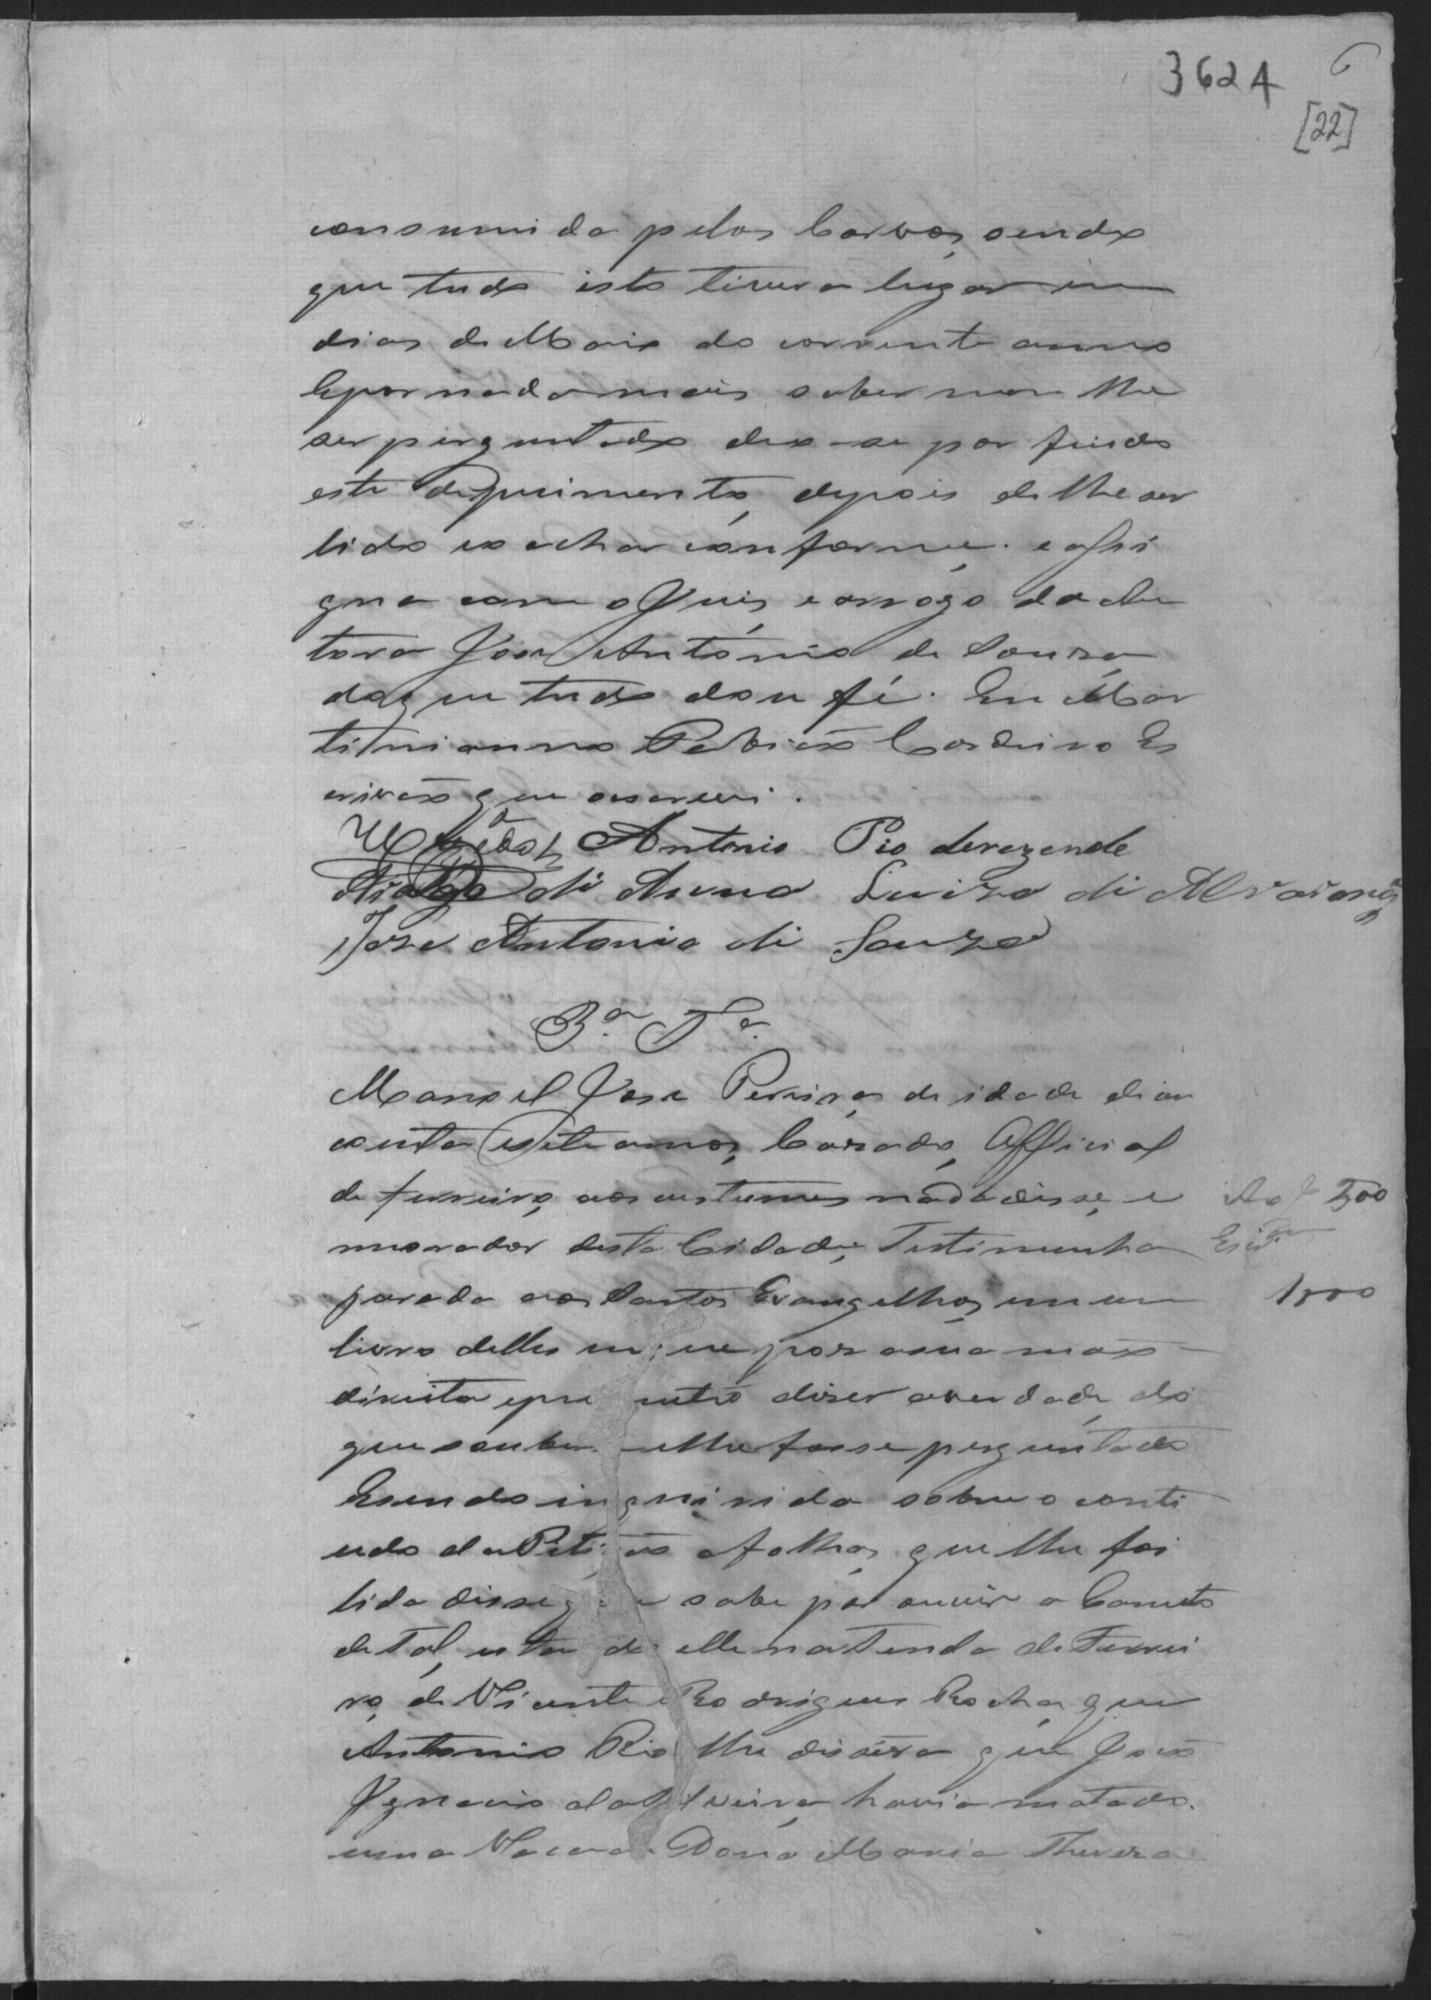 3624
6
[22]
consumida pelos Corvos, sendo
que tudo isto tivera lugar em
dias de Maio do corrente anno
E por nada mais saber nem lhe
ser perguntado deu-se por findo
este depuimento, depois de lhe ser
lido e o achar conforme. e assi
gna com o Juis, e arrogo da Au
tora José António de Souza
do que tudo dou fé. Eu Mar
timianno Cordeiro Es
crivão que oescrevi.
Antonio Pio derezende
Arogo di Anna Luiza di
Jose Antonio di Souza
3.a T.a
Manoel José Pereira, de idade de
centa e sete annos, Cazado, Official
de ferreiro, aos custumes nada disse, e
morador desta Cidade, Testimunha
jurada aos Santos Evangelhos, em um
livro delles em que pos a sua mão
direita e pro metteo diser averdade, do
que soubesse e lhe fosse perguntado
Esendo inquirida sobre o conti
udo da Petição afolhas, que lhe foi
lida disse que sabe por ouvir a Canuto
de Tal, estando elle na Tenda de Ferrei
ro, de Vicente Rodrigues Rocha, que
Antonio Pio lhe dissera que João
Ignacio da Silveira, havia matado
uma Vacca de Dona Maria Thereza
500
1000